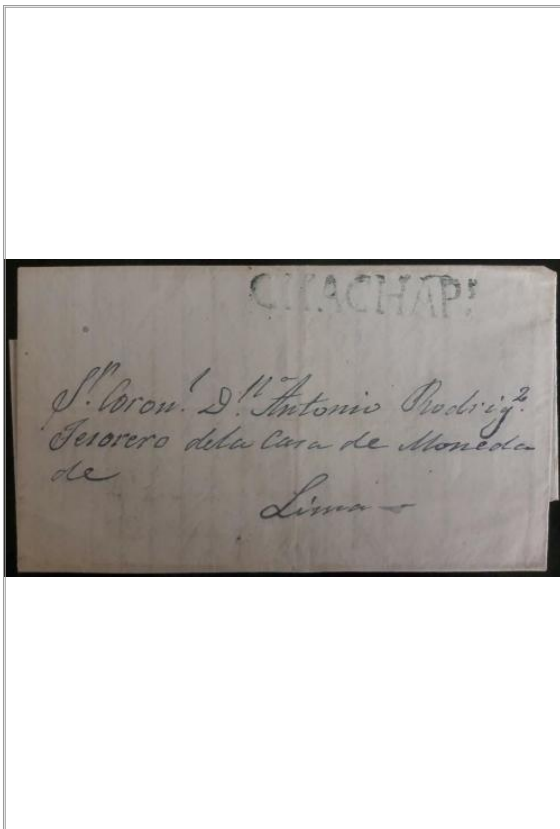 CHACHAPˢ
Sʳ. Coronˡ. Dⁿ Antonio Rodrigᶻ.
Tesorero dela Casa de Moneda
de
Lima